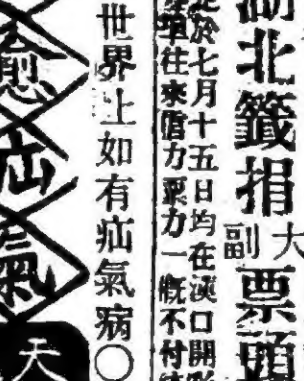 湖北籤捐
大
副
票頭
於七月十五日均在漢口開彩
往來信力票力一概不付
世界上如有疝氣病〇
愈疝氣
天